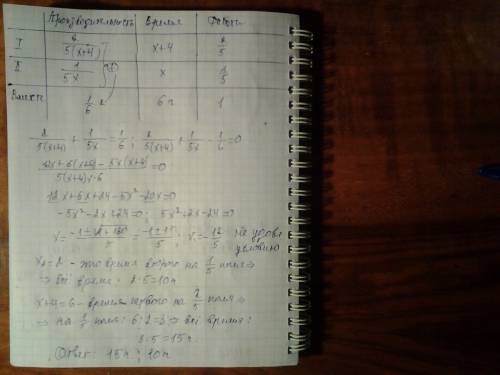 Производительность Время Работа
I 2/5(x+4) x+4 2/5
II 1/5x x 1/5
Вместе 1/6 6 ч 1
2/5(x+4) + 1/5x = 1/6 ; 2/5(x+4) + 1/5x - 1/6 = 0
12x+6(x+4) - 5x(x+4) / 5(x+4)x·6 = 0
12x+6x+24-5x²-20x=0
-5x²-2x+24=0; 5x²+2x-24=0
x= = -1±11/5 ; x=-12/5 не удовл
условию
x=2 - это время второго на 1/5 поля ⇒
⇒ всё время: 2·5=10ч
x+4=6 - время первого на 2/5 поля ⇒
⇒ на 1/5 поля: 6:2=3 ⇒ всё время:
3·5=15ч
Ответ: 15ч; 10ч